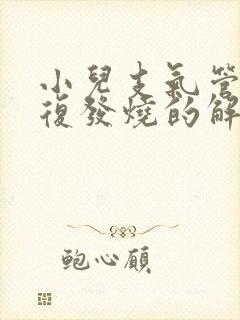 小兒支氣管
復發燒的解
鮑心願